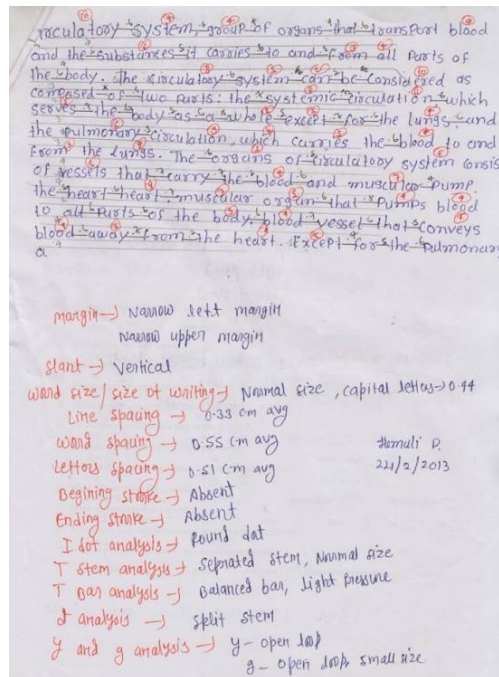 irculatory system, group of organs that transport blood
and the substances it carries to and from all parts of
the body. The circulatory system can be considered as
composed of two parts: the systemic circulation which
serves the body as a whole except for the lungs, and
the pulmonary circulation, which carries the blood to and
from the lungs. The organs of circulatory system consis
of vessels that carry the blood and muscular pump.
the heart heart, muscular organ that pumps blood
to all parts of the body. blood vessel that conveys
blood away from the heart. Except for the pulmonary
a
margin → Narrow left margin
Narrow upper margin
slant → Vertical
word size/size of writing → Normal size, capital letters → 0.44
Line spacing → 0.33 cm avg
word spacing → 0.55 cm avg
Letters spacing → 0.51 cm avg
Hemali P.
24/2/2013
Begining stroke → Absent
Ending stroke → Absent
I dot analysis → Round dot
T stem analysis → Seprated stem, Normal size
T Bar analysis → Balanced bar, light pressure
d analysis → split stem
y and g analysis → y - open loop
g - open loop, small size